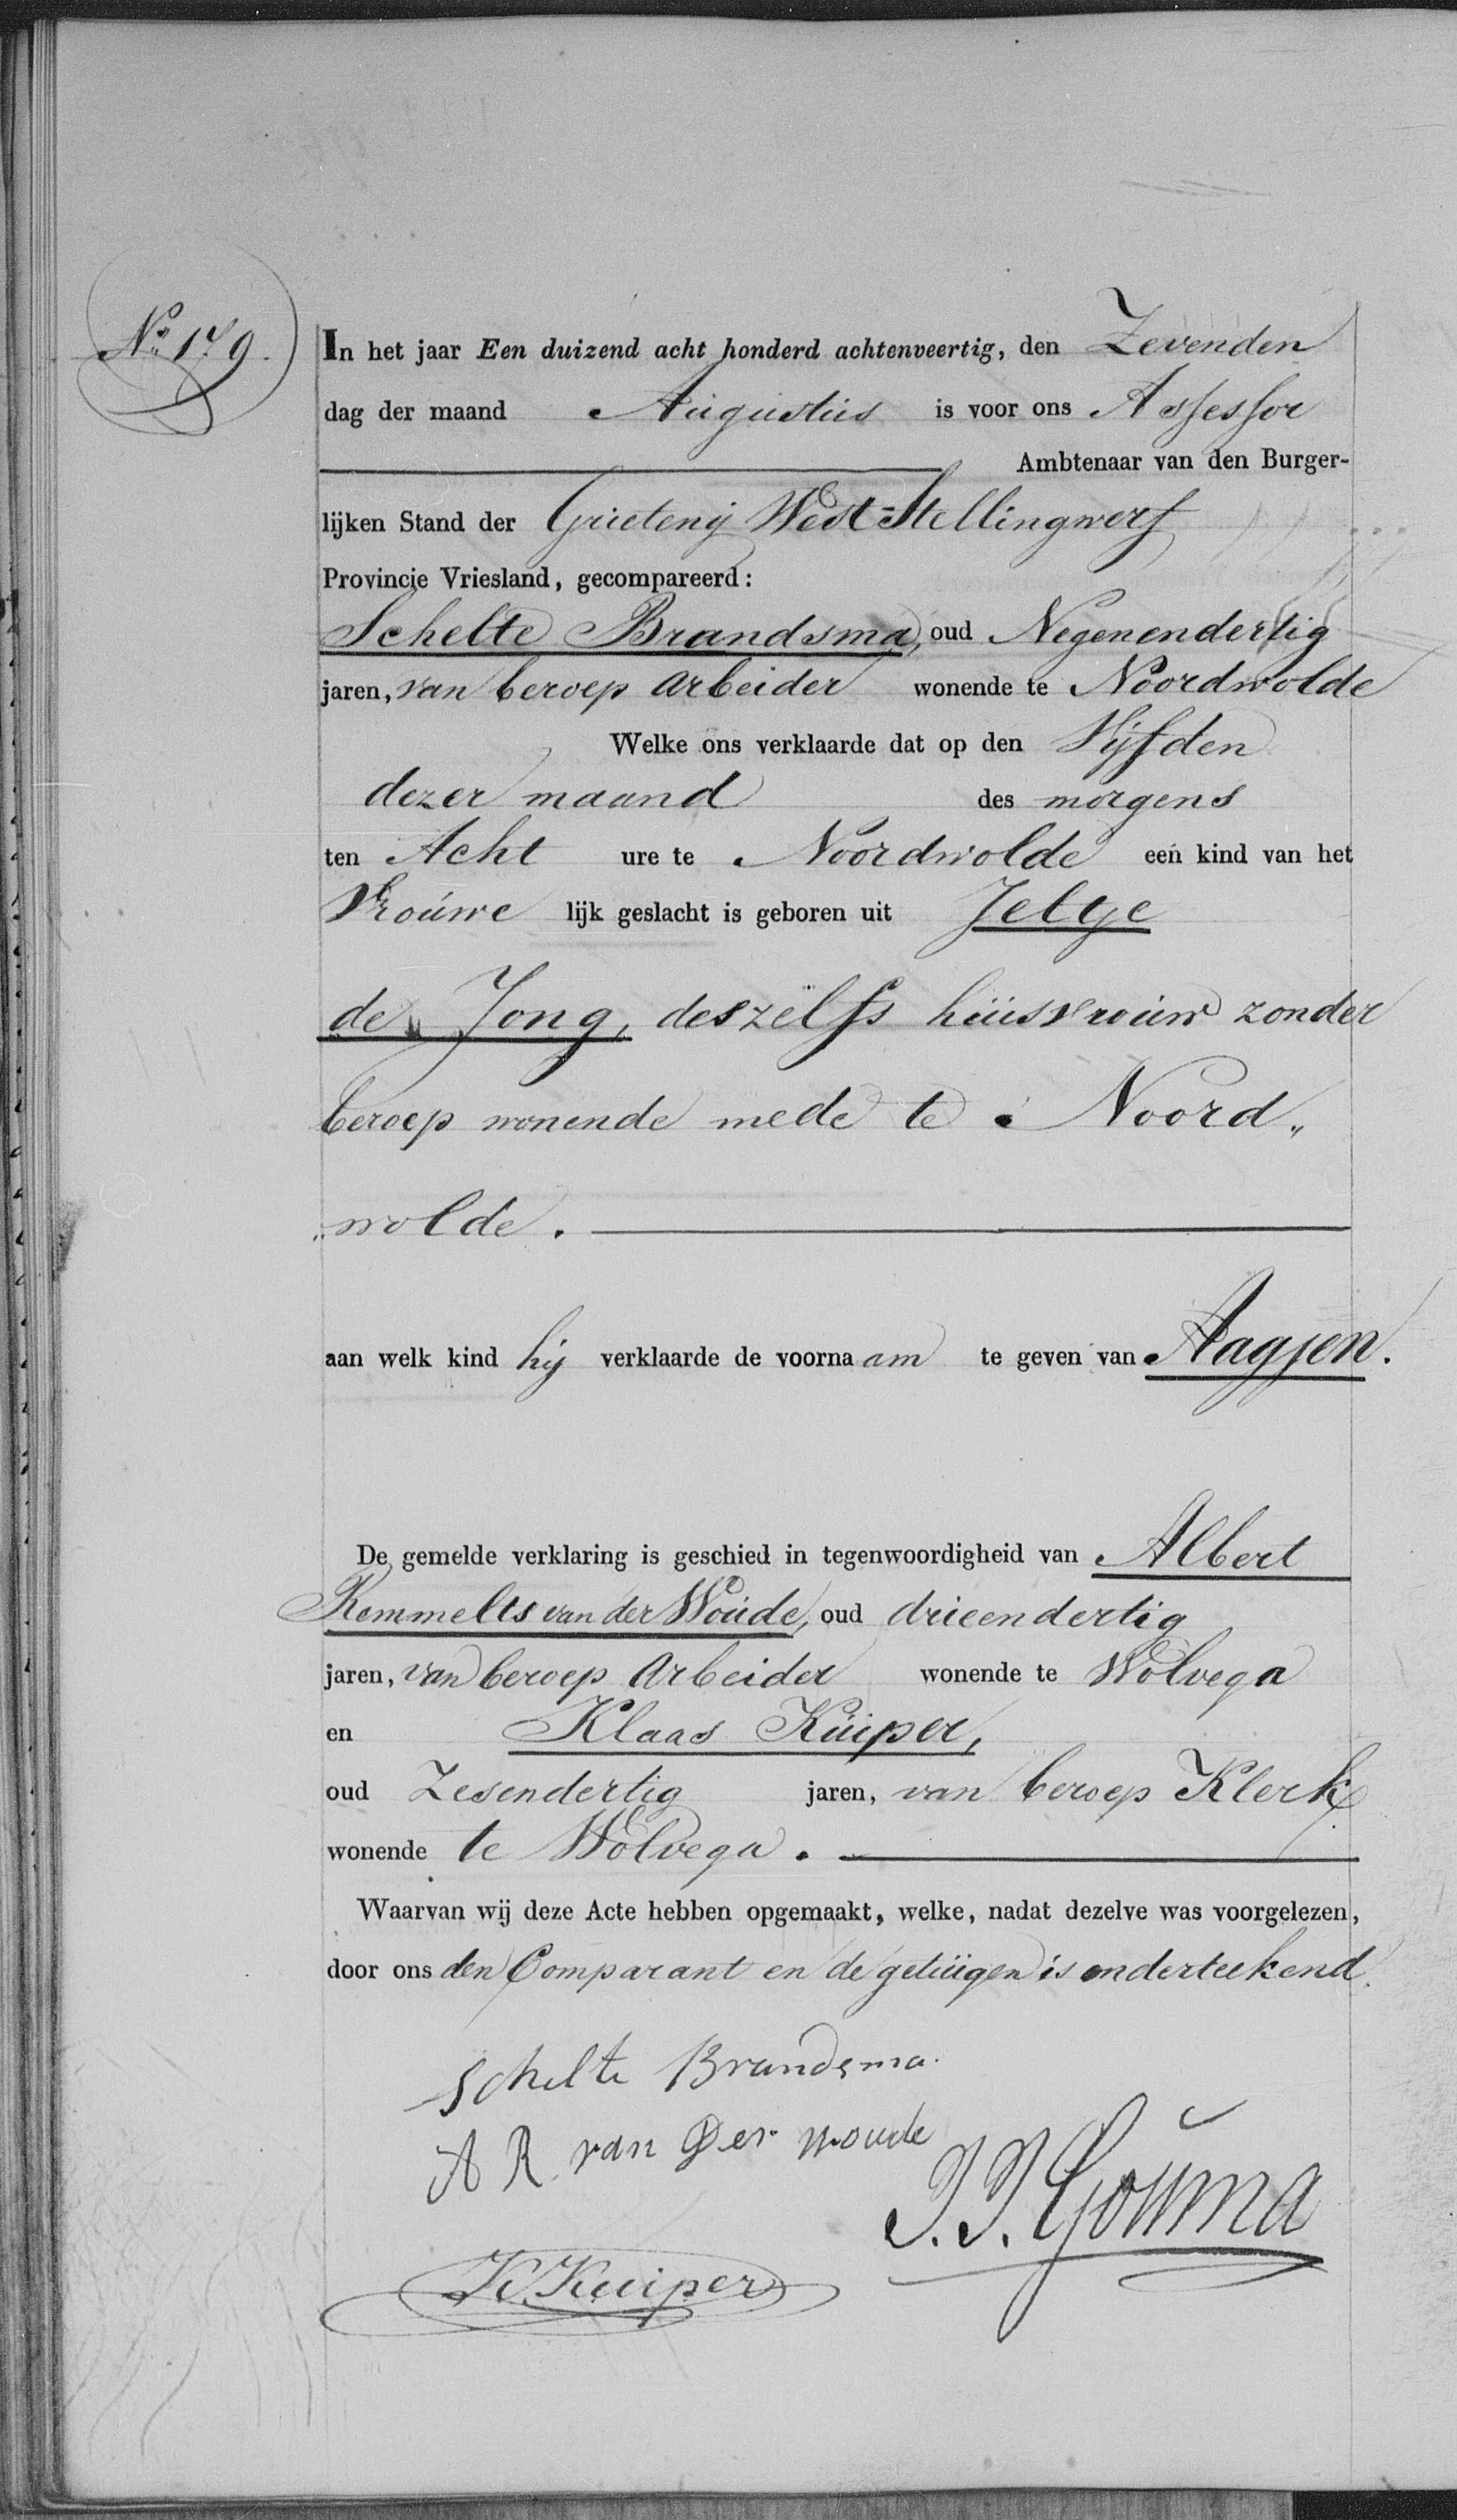 No. 179.
In het jaar Een duizend acht honderd achtenveertig, den Zevenden
dag der maand Augustus is voor ons Assessor
Ambtenaar van den Burger-
lijken Stand der Grietenij West-Stellingwerf
Provincie Vriesland, gecompareerd:
Schelte Brandsma, oud Negenendertig
jaren, van beroep Arbeider wonende te Noordwolde
Welke ons verklaarde dat op den Vijfden
dezer maand des morgens
ten Acht ure te Noordwolde een kind van het
Vrouwe lijk geslacht is geboren uit Jeltje
de Jong, deszelfs huisvrouw zonder
beroep wonende mede te Noord„
„wolde.
aan welk kind hij verklaarde de voornaam te geven van Aagjen.
De gemelde verklaring is geschied in tegenwoordigheid van Albert
Remmelts van der Woude, oud drieendertig
jaren, van beroep Arbeider wonende te Wolvega
en Klaas Kuiper,
oud Zesendertig jaren, van beroep Klerk
wonende te Wolvega.
Waarvan wij deze Acte hebben opgemaakt, welke, nadat dezelve was voorgelezen,
door ons den Comparant en de getuigen is onderteekend.
Schelte Brandsma.
A R. van Der woude
J. J. Gouma
K. Kuiper